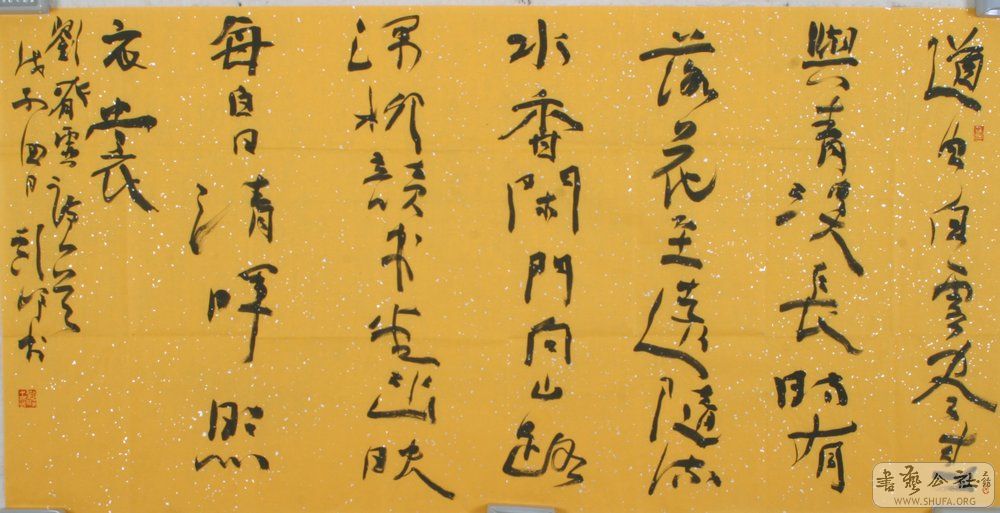 道由白雲尽春
與青溪長時有
落花至遠隨流
水香閑門向山路
深柳讀書堂幽映
每白日清暉照
衣裳
劉昚虛詩一首
戊子四月書
書藝公社
WWW.SHUFA.ORG